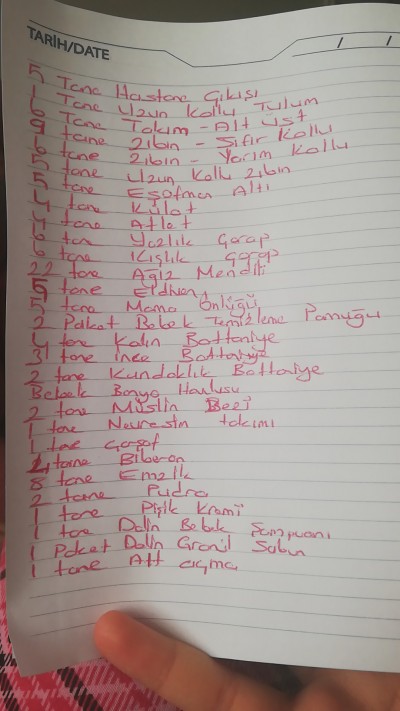 TARİH/DATE / /
5 Tane Hastane Çıkışı
1 Tane Uzun Kollu Tulum
6 Tane Takım - Alt Üst
9 tane Zıbın - Sıfır Kollu
6 tane Zıbın - Yarım Kollu
5 tane Uzun Kollu Zıbın
5 tane Eşofman Altı
4 tane Külot
4 tane Atlet
6 tane Yazlık Çorap
6 tane Kışlık Çorap
22 tane Ağız Mendili
5 tane Eldiven
5 tane Mama Önlüğü
2 Paket Bebek Temizleme Pamuğu
4 tane Kalın Battaniye
3 tane İnce Battaniye
2 tane Kundaklık Battaniye
Bebek Banyo Havlusu
2 tane Müslin Bezi
1 tane Nevresim takımı
1 tane Çarşaf
2 tane Biberon
8 tane Emzik
2 tane Pudra
1 tane Pişik Kremi
1 tane Dalin Bebek Şampuanı
1 Paket Dalin Granül Sabun
1 tane Alt açma